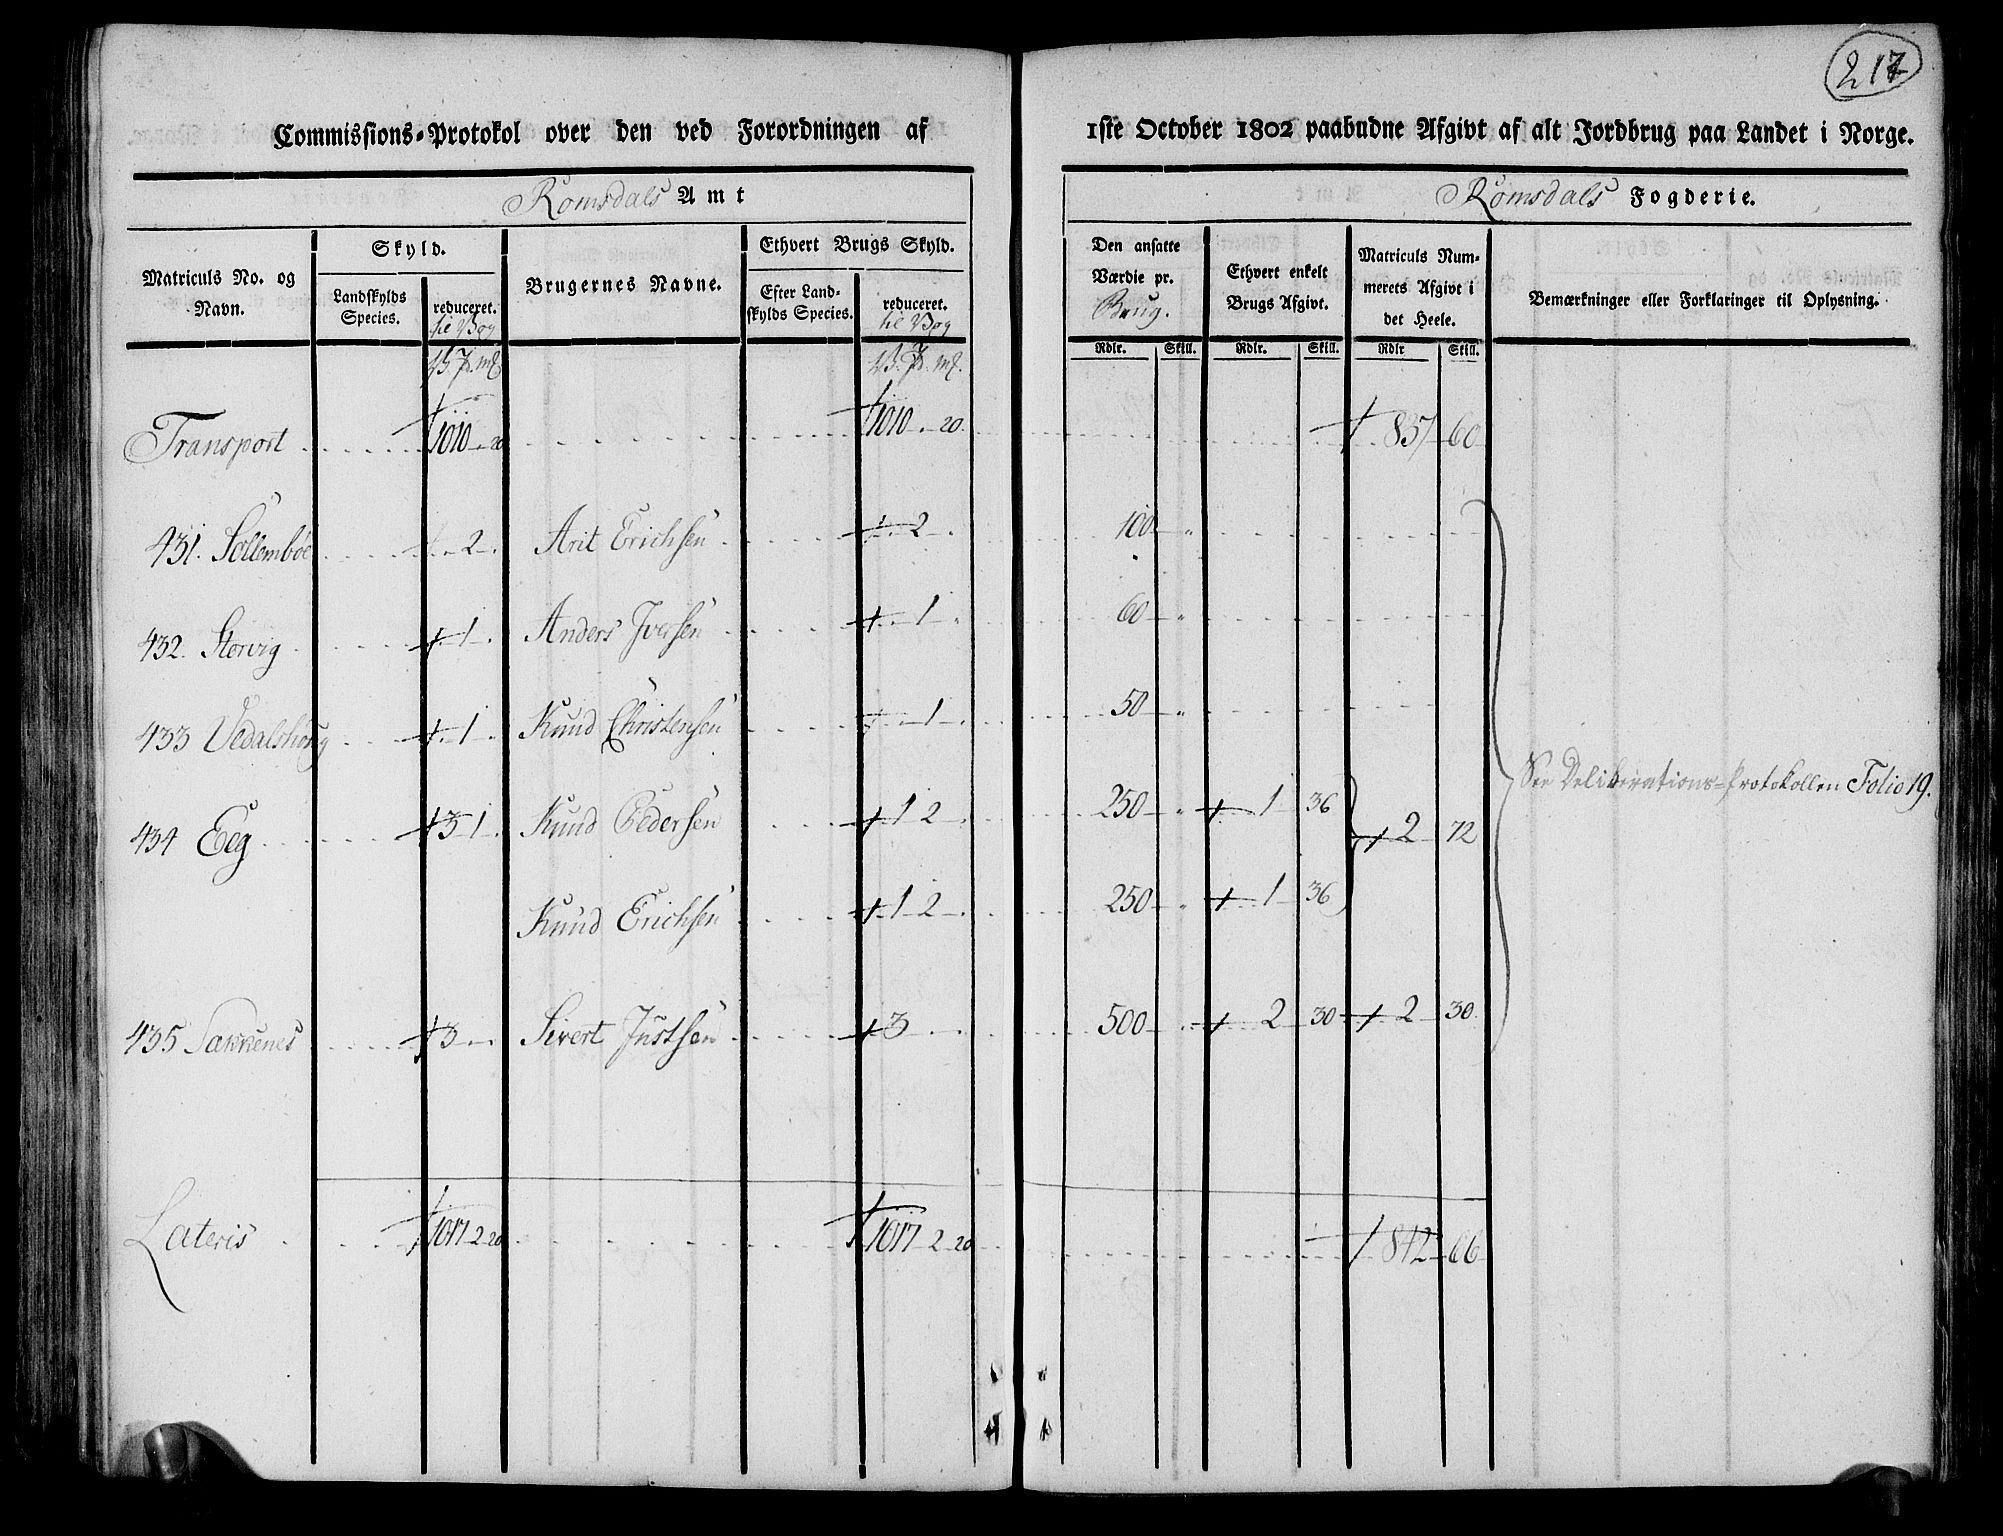 217
Commissions-Protokol over den ved Forordningen af 1ste October 1802 paabudne Afgivt af alt Jordbrug paa Landet i Norge.
Romsdals Amt
Romsdals Fogderie.
Matriculs No. og Navn.
Skyld.
Landskylds Species.
reduceret.
til Vog
Brugernes Navne.
Ethvert Brugs Skyld.
Efter Landskylds Species.
reduceret.
til Vog
Den ansatte Værdie pr. Brug.
Ethvert enkelt Brugs Afgivt.
Matriculs Nummerets Afgivt i det Heele.
Bemærkninger eller Forklaringer til Oplysning.
Rdlr. Skill. Rdlr. Skill. Rdlr Skill.
Transport 1010 - 20 1010 - 20 837 60
431. Sollembøe - 2 - Arit Erichsen - 2 - 100 "
432. Storvig - 1 - Anders Iversen - 1 - 60 "
433 Vedalshoug - 1 - Knud Christensen - 1 - 50 "
See Deliberations-Protokollen Folio 19.
434 Eeg 3 1 - Knud Pedersen 1 2 - 250 " 1 36 2 72
Knud Erichsen 1 2 - 250 " 1 36
435 Sakkenes 3 - - Sivert Justsen 3 - - 500 " 2 30 2 30
Lateris 1017 2 20 1017 2 20 842 66